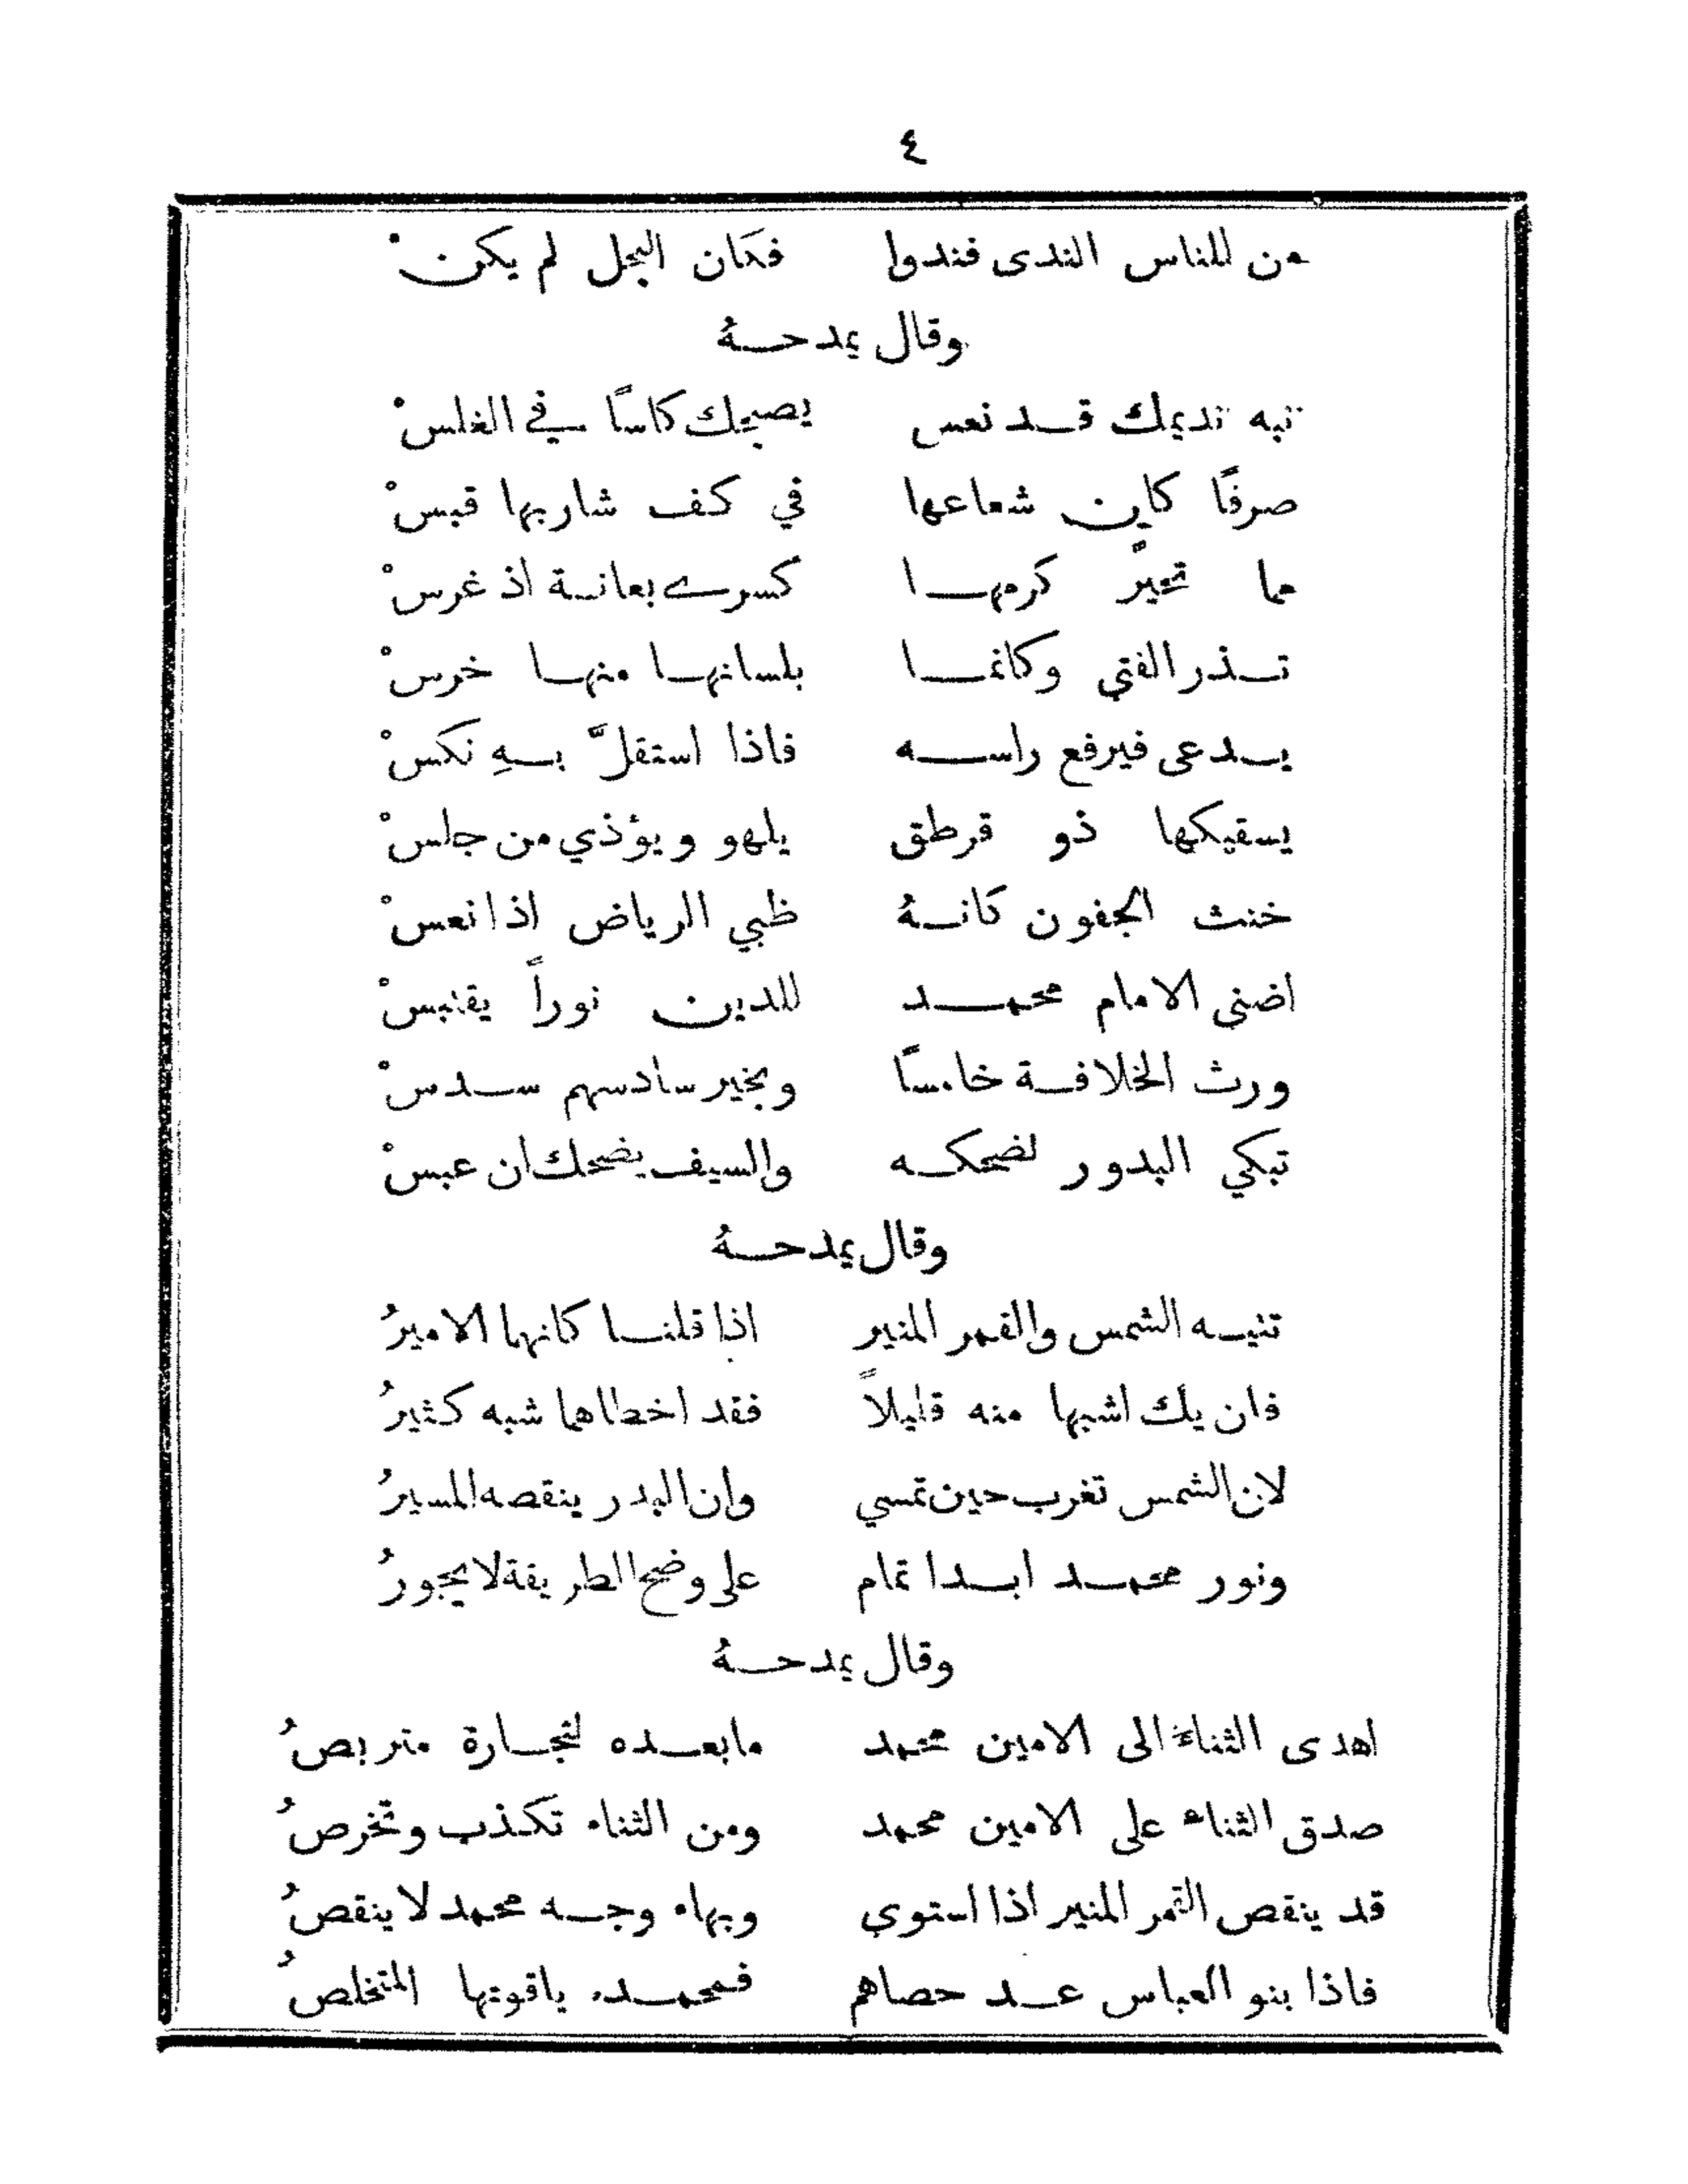 ٤
من للناس الندى فندوا فكان البخل لم يكنْ
وقال يمدحــهُ
نبه نديمك قــد نعس يصبحك كاسًا في الغلسْ
صرفًا كان شعاعها في كف شاربها قبسْ
مما تخيرّ كرمهــا كسرى بعانــة اذ غرسْ
تــذر الفتى وكانمــا بلسانهــا منهــا خرسْ
يــدعى فيرفع راســه فاذا استقلَّ بــهِ نكسْ
يسقيكها ذو قرطق يلهو ويؤذي من جلسْ
خنث الجفون كانــهُ ظبي الرياض اذا نعسْ
اضنى الامام محمــد للدين نوراً يقتبسْ
ورث الخلافــة خامسًا وبخير سادسهم ســدسْ
تبكي البدور لضحكــه والسيف يضحك ان عبسْ
وقال يمدحــهُ
تتيــه الشمس والقمر المنير اذا قلنــا كانهما الاميرُ
فان يك اشبها منه قليلاً فقد اخطاهما شبه كثيرُ
لان الشمس تغرب حين تمسي وان البدر ينقصه المسيرُ
ونور محمــد ابــدا تمام على وضح الطريقة لا يجورُ
وقال يمدحــهُ
اهدى الثناءَ الى الامين محمد مابعــده لتجــارة متربصُ
صدق الثناء على الامين محمد ومن الثناء تكذب وتخرصُ
قد ينقص القمر المنير اذا استوى وبهاء وجــه محمد لا ينقصُ
فاذا بنو العباس عــد حصاهم فمحمــد ياقوتها المتخلصُ